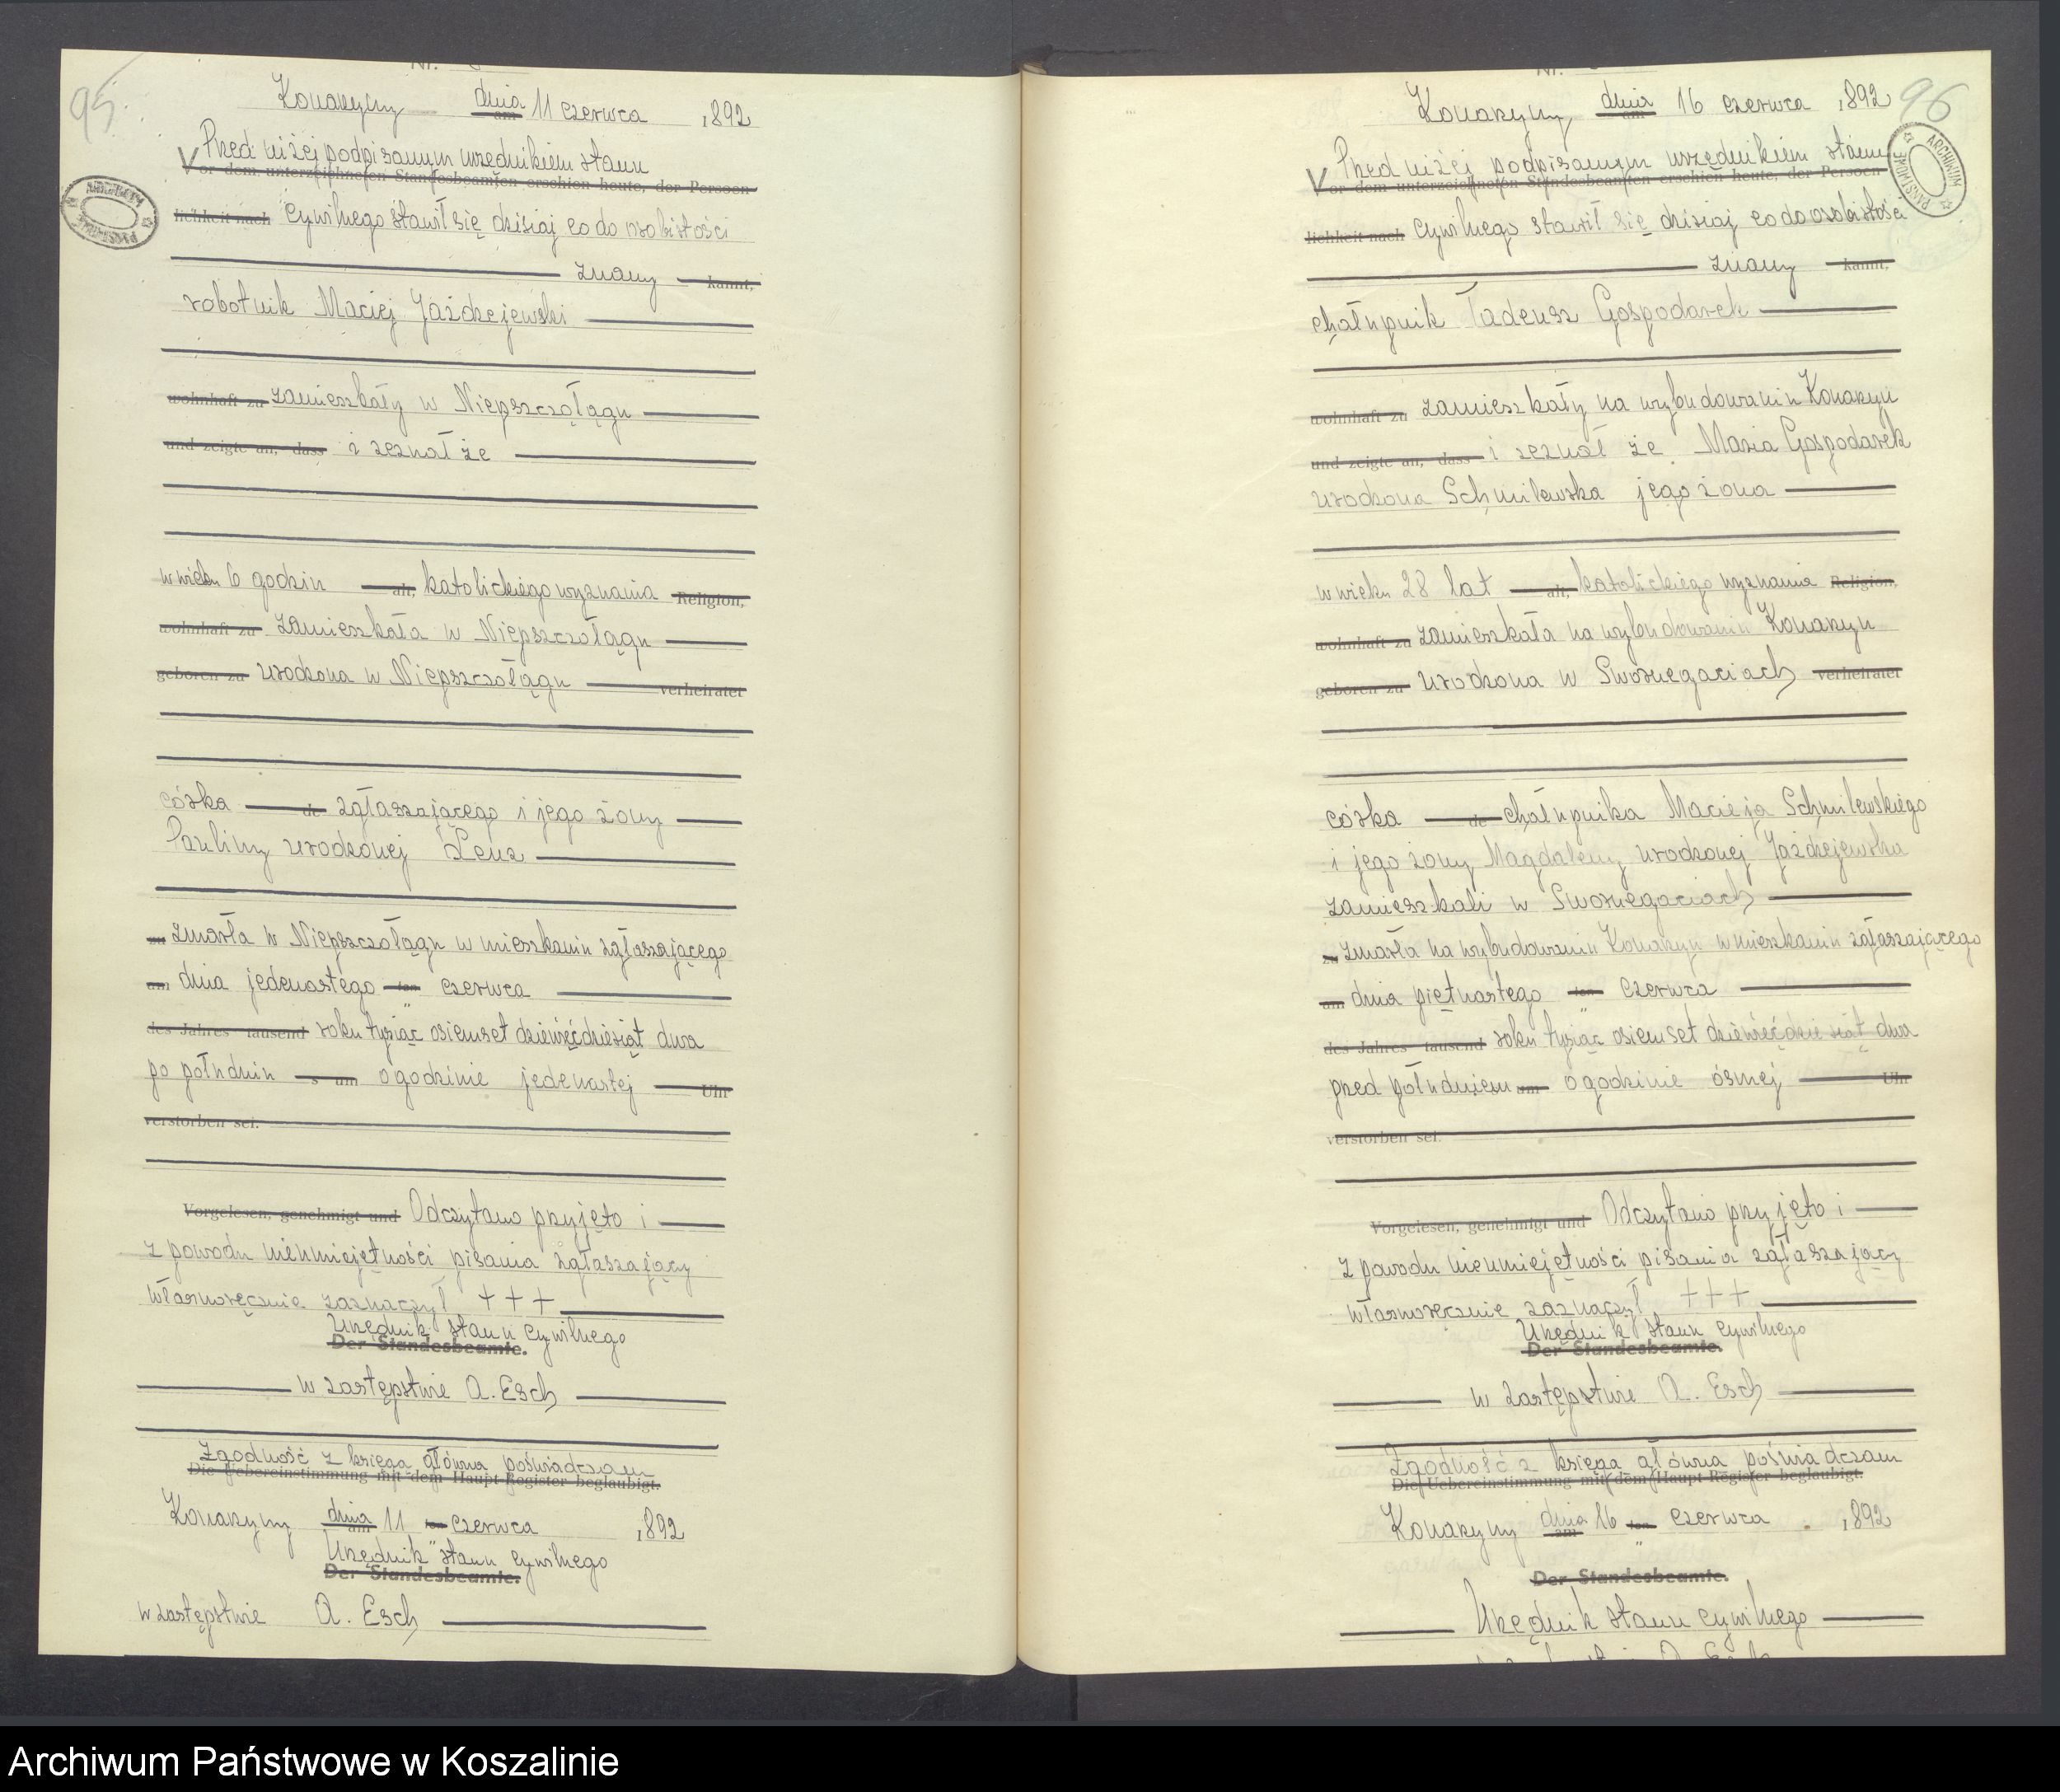 95.
Konarzyny dnia am 11 czerwca 1892
Przed niżej podpisanym urzędnikiem stanu
Vor dem unterzeichneten Standesbeamten erschien heute, der Persoen-
lichkeit nach cywilnego stawił się dzisiaj co do osobistości
znany kannt,
robotnik Maciej Jażdżejewski
wohnhaft zu zamieszkały w Niepszczołągu
und zeigte an, dass i zeznał że
w wieku 6 godzin alt, katolickiego wyznania Religion,
wohnhaft zu zamieszkała w Niepszczołągu
geboren zu urodzona w Niepszczołągu verheiratet
córka de zgłaszającego i jego żony
Pauliny urodzonej Lenz
zmarła w Niepszczołągu w mieszkaniu zgłaszającego
am dnia jedenastego ten czerwca
des Jahres tausend roku tysiąc osiemset dziewięćdziesiąt dwa
po południu s um o godzinie jedenastej Uhr
verstorben sei.
Vorgelesen, genehmigt und Odczytano przyjęto i
z powodu nieumiejętności pisania zgłaszający
własnoręcznie zaznaczył + + +
Urzędnik stanu cywilnego
Der Standesbeamte.
w zastępstwie A. Esch
Zgodność z księgą główną poświadczam
Die Uebereinstimmung mit dem Haupt-Register beglaubigt.
Konarzyny dnia am 11 ten czerwca 1892
Urzędnik stanu cywilnego
Der Standesbeamte.
w zastępstwie A. Esch
96
Konarzyny dnia am 16 czerwca 1892
ARCHIWUM PAŃSTWOWE
Przed niżej podpisanym urzędnikiem stanu
Vor dem unterzeichneten Standesbeamten erschien heute, der Persoen-
lichkeit nach cywilnego stawił się dzisiaj co do osobistości
znany kannt,
chałupnik Tadeusz Gospodarek
wohnhaft zu zamieszkały na wybudowaniu Konarzyn
und zeigte an, dass i zeznał że Maria Gospodarek
urodzona Schmilewska jego żona
w wieku 28 lat alt, katolickiego wyznania Religion,
wohnhaft zu zamieszkała na wybudowaniu Konarzyn
geboren zu urodzona w Swornegaciach verheiratet
córka de chałupnika Macieja Schmilewskiego
i jego żony Magdaleny urodzonej Jażdżejewska
zamieszkali w Swornegaciach
zu zmarła na wybudowaniu Konarzyn w mieszkaniu zgłaszającego
am dnia piętnastego ten czerwca
des Jahres tausend roku tysiąc osiemset dziewięćdziesiąt dwa
przed południem um o godzinie ósmej Uhr
verstorben sei.
Vorgelesen, genehmigt und Odczytano przyjęto i
z powodu nieumiejętności pisania zgłaszający
własnoręcznie zaznaczył + + +
Urzędnik stanu cywilnego
Der Standesbeamte.
w zastępstwie A. Esch
Zgodność z księgą główną poświadczam
Die Uebereinstimmung mit dem Haupt-Register beglaubigt.
Konarzyny dnia am 16 ten czerwca 1892
Der Standesbeamte.
Urzędnik stanu cywilnego
Archiwum Państwowe w Koszalinie